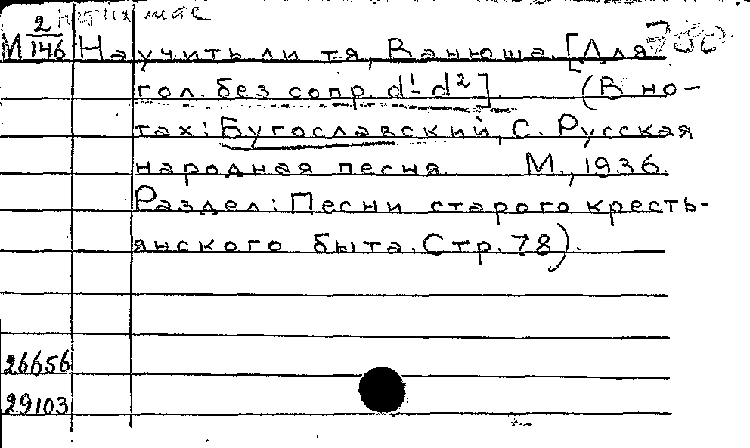 М 2/146 Научить ли тя, Ванюша. [Для
гол. без сопр. d¹-d²]. (В но-
тах: Бугославский, С. Русская
народная песня. М., 1936.
Раздел: Песни старого кресть-
янского быта. Стр. 78).
26656
29103